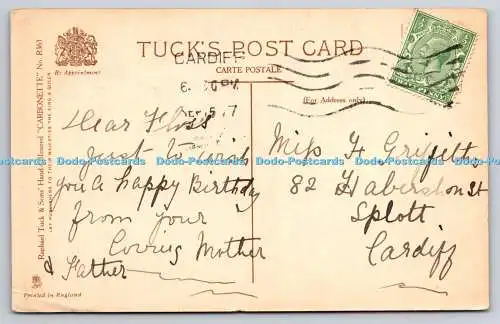 TUCK'S POST CARD
CARTE POSTALE
(For Address only)
By Appointment
Raphael Tuck & Sons' Hand-Coloured "CARBONETTE" No. R363
ART PUBLISHERS TO THEIR MAJESTIES THE KING & QUEEN
CARDIFF
Dear Floss
Just to wish
you a happy Birthday
from your
Loving Mother
& Father
Miss F Griffiths
82 Habershon St
Splott
Cardiff
Dodo-Postcards Dodo-Postcards Dodo-Postcards Dodo-Postcards Dodo-Postcards Dodo-Postcards Dodo-Postcards
Printed in England